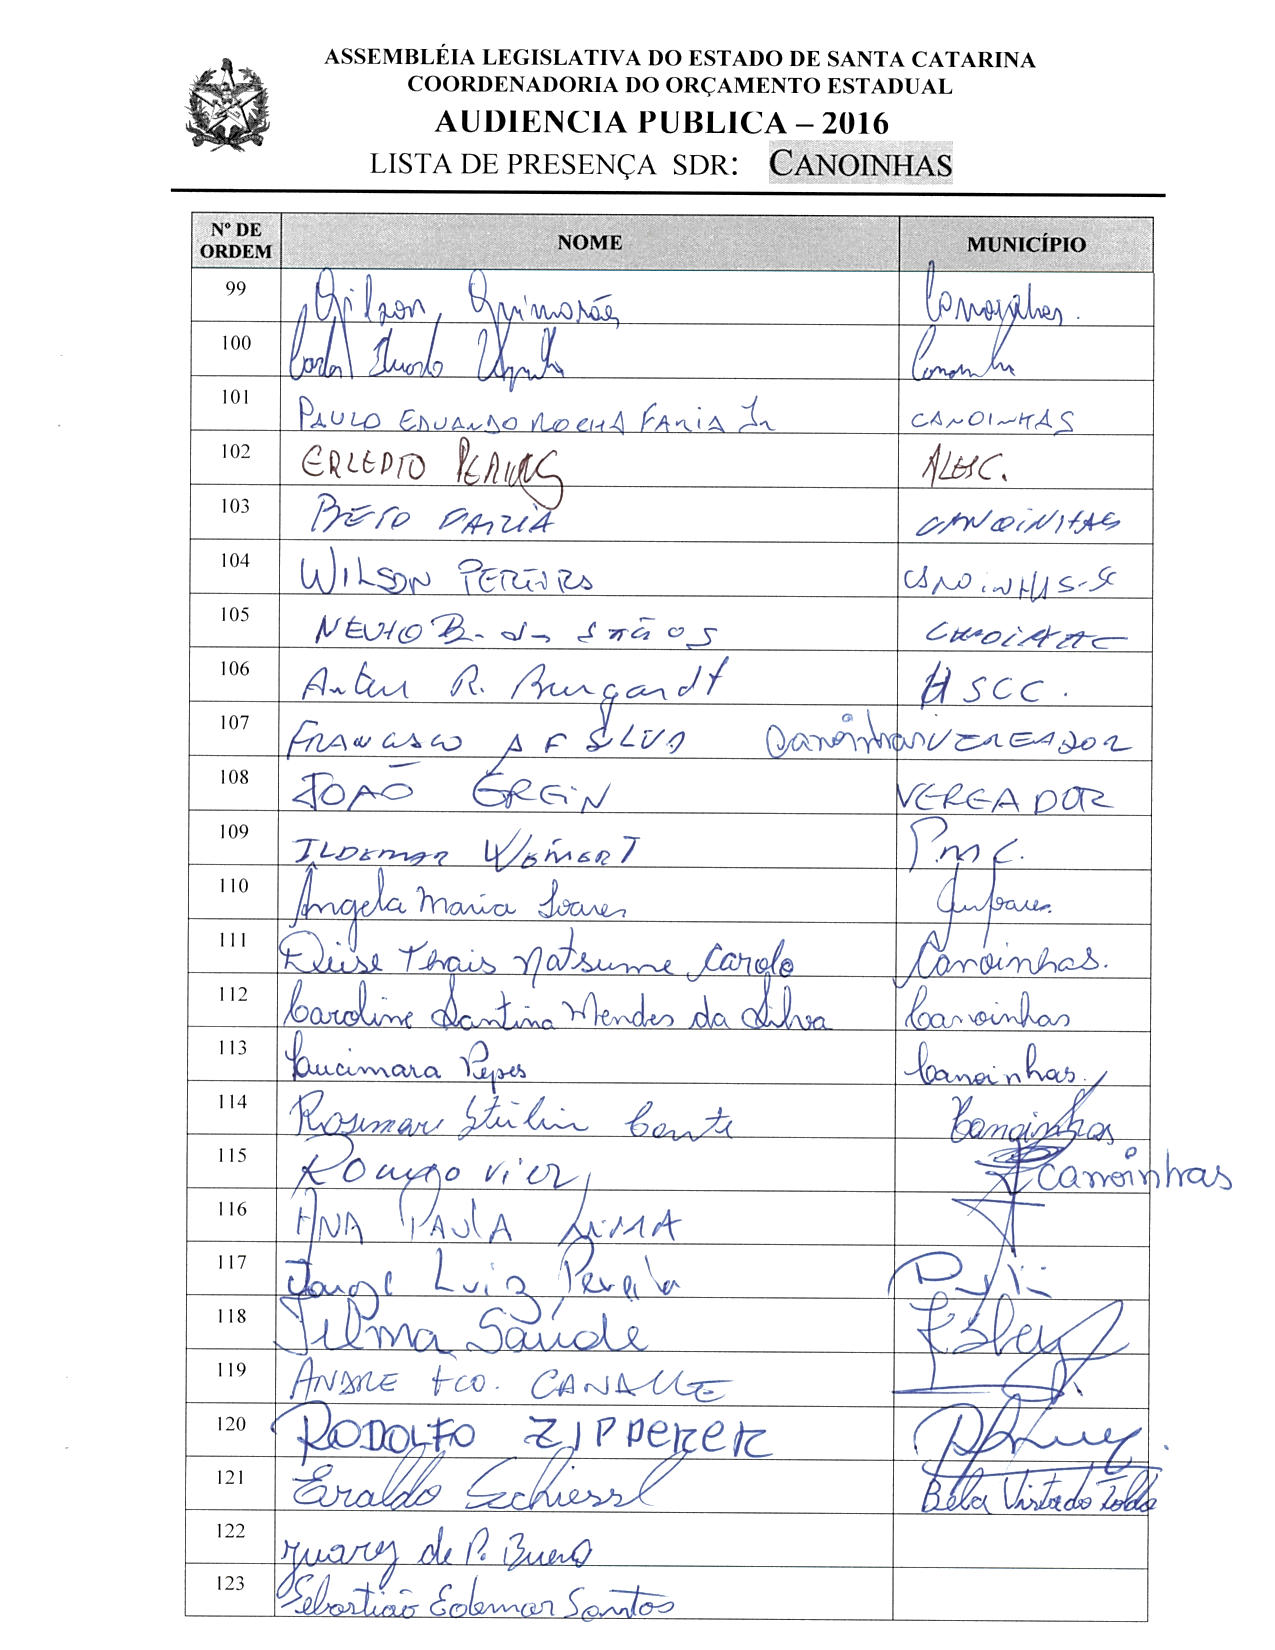 ASSEMBLÉIA LEGISLATIVA DO ESTADO DE SANTA CATARINA
COORDENADORIA DO ORÇAMENTO ESTADUAL
AUDIENCIA PUBLICA – 2016
LISTA DE PRESENÇA SDR: CANOINHAS
Nº DE ORDEM NOME MUNICÍPIO
99 Gilson Guimarães Canoinhas.
100 Carlos Eduardo
101 PAULO EDUARDO ROCHA FARIA Jr CANOINHAS
102 ALESC.
103 BETO FARIA CANOINHAS
104 WILSON PEREIRA CANOINHAS-SC
105 CANOINHAS
106 R. Burgardt HSCC.
107 FRANCISCO A F SILVA Canoinhas VEREADOR
108 JOÃO GREIN VEREADOR
109 ILDEMAR P.M.C.
110 Ângela Maria Soares
111 Deise Thais Natsume Carolo Canoinhas.
112 Caroline Santina Mendes da Silva Canoinhas
113 Lucimara Canoinhas.
114 Canoinhas
115 Canoinhas
116 ANA PAULA LIMA
117 Jorge Luiz Pereira
118 Telma Saúde
119 ANDRE FCO. CANALLE
120 RODOLFO ZIPPERER
121 Eraldo Schiessl Bela Vista do Toldo
122 Juarez de P. Bueno
123 Sebastião Edemar Santos